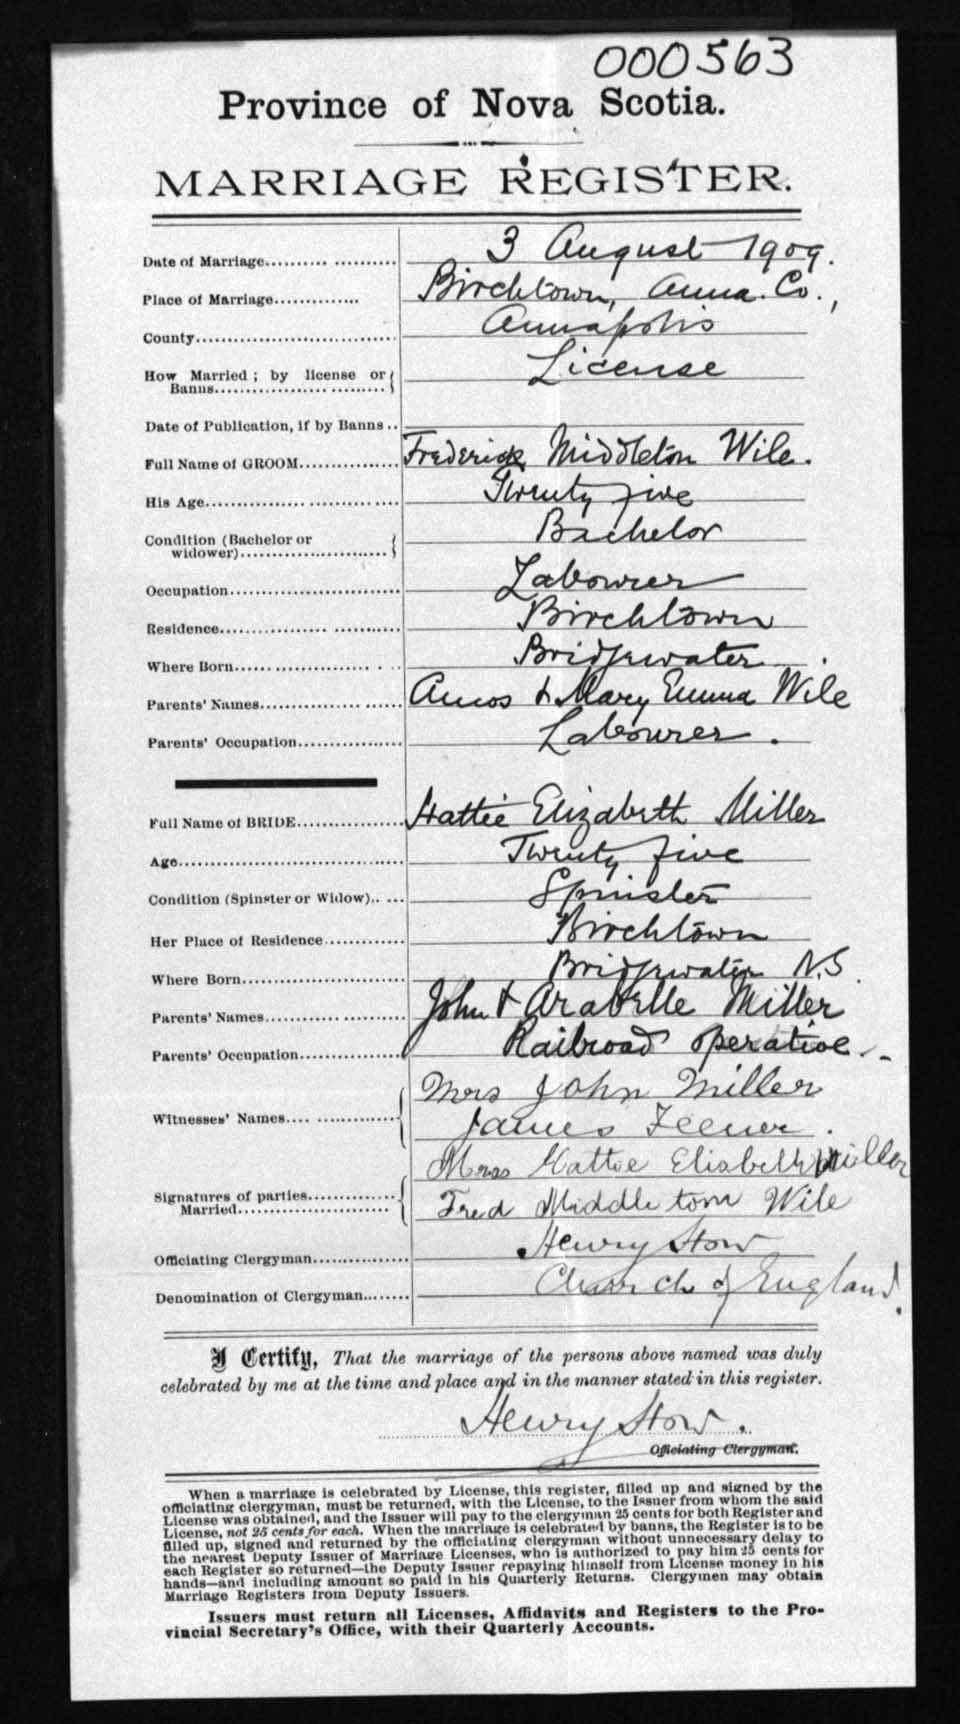 000563
Province of Nova Scotia.
MARRIAGE REGISTER.
Date of Marriage 3 August 1909.
Place of Marriage Birchtown, Anna. Co.,
County Annapolis
How Married ; by license or
Banns License
Date of Publication, if by Banns
Full Name of GROOM Frederick Middleton Wile.
His Age Twenty five
Condition (Bachelor or
widower) Bachelor
Occupation Labourer
Residence Birchtown
Where Born Bridgewater
Parents' Names Amos & Mary Emma Wile
Parents' Occupation Labourer.
Full Name of BRIDE Hattie Elizabeth Miller
Age Twenty five
Condition (Spinster or Widow) Spinster
Her Place of Residence Birchtown
Where Born Bridgewater N.S.
Parents' Names John & Arabelle Miller
Parents' Occupation Railroad operative
Witnesses' Names Mrs John Miller
James Feener.
Signatures of parties Hattie Miller
Married Fred Middleton Wile
Officiating Clergyman Henry How
Denomination of Clergyman Church of England.
I Certify, That the marriage of the persons above named was duly
celebrated by me at the time and place and in the manner stated in this register.
Henry How.
Officiating Clergyman.
When a marriage is celebrated by License, this register, filled up and signed by the
officiating clergyman, must be returned, with the License, to the Issuer from whom the said
License was obtained, and the Issuer will pay to the clergyman 25 cents for both Register and
License, not 25 cents for each. When the marriage is celebrated by banns, the Register is to be
filled up, signed and returned by the officiating clergyman without unnecessary delay to
the nearest Deputy Issuer of Marriage Licenses, who is authorized to pay him 25 cents for
each Register so returned—the Deputy Issuer repaying himself from License money in his
hands—and including amount so paid in his Quarterly Returns. Clergymen may obtain
Marriage Registers from Deputy Issuers.
Issuers must return all Licenses, Affidavits and Registers to the Pro-
vincial Secretary's Office, with their Quarterly Accounts.